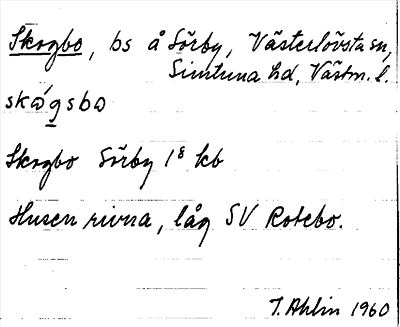 Skogbo, bs å Sörby, Västerlövsta sn,
Simtuna hd, Västm. l.
skógsbo
Skogbo Sörby 1⁸ kb
Husen rivna, låg SV Rotebo.
T. Ahlin 1960